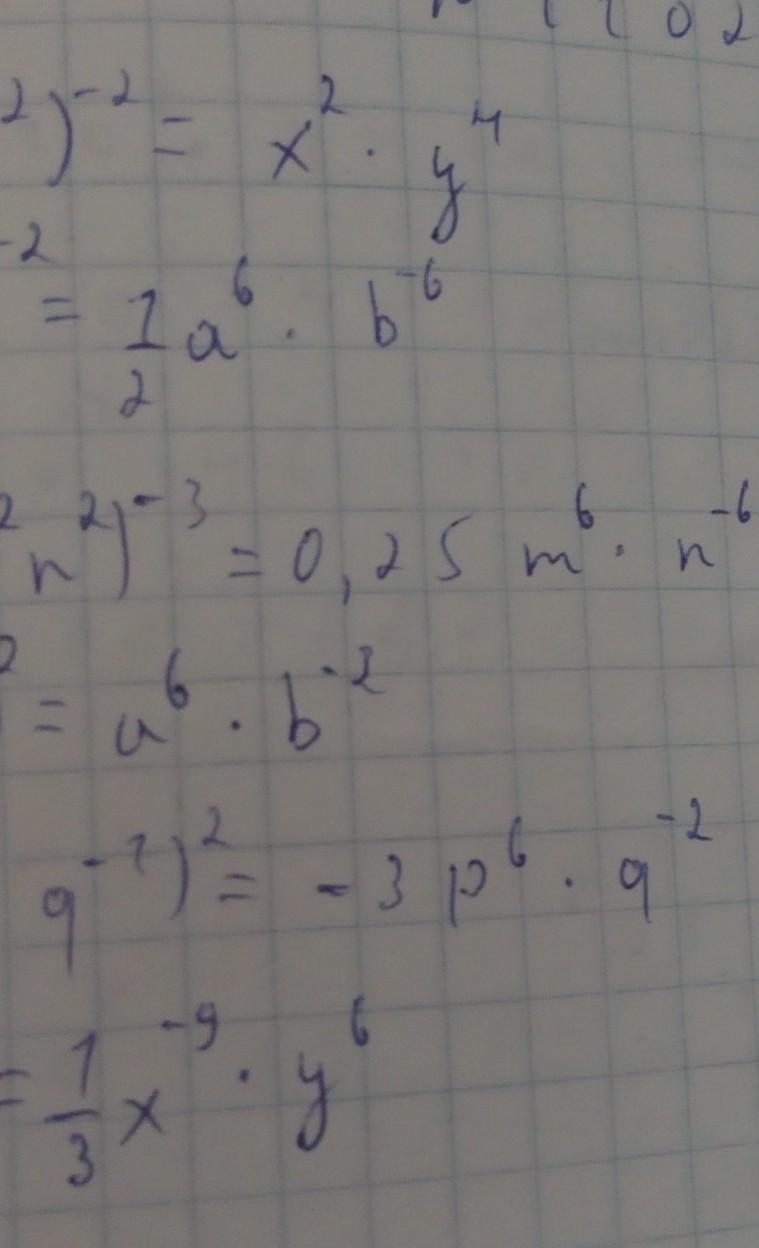 ²)⁻² = x² · y⁴
⁻² = 1/2 a⁶ · b⁻⁶
² n²)⁻³ = 0,25 m⁶ · n⁻⁶
² = a⁶ · b⁻²
q⁻¹)² = -3 p⁶ · q⁻²
= 1/3 x⁻⁹ · y⁶